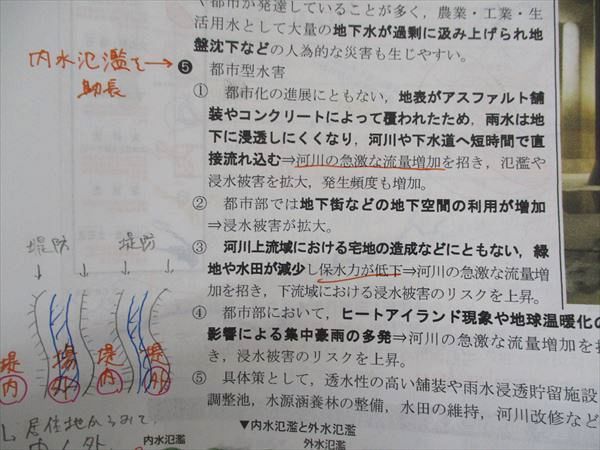 都市が発達していることが多く，農業・工業・生
活用水として大量の地下水が過剰に汲み上げられ地
盤沈下などの人為的な災害も生じやすい。
内水氾濫を→
助長
❺ 都市型水害
① 都市化の進展にともない，地表がアスファルト舗
装やコンクリートによって覆われたため，雨水は地
下に浸透しにくくなり，河川や下水道へ短時間で直
接流れ込む⇒河川の急激な流量増加を招き，氾濫や
浸水被害を拡大，発生頻度も増加。
② 都市部では地下街などの地下空間の利用が増加
⇒浸水被害が拡大。
③ 河川上流域における宅地の造成などにともない，緑
地や水田が減少し保水力が低下⇒河川の急激な流量増
加を招き，下流域における浸水被害のリスクを上昇。
④ 都市部において，ヒートアイランド現象や地球温暖化の
影響による集中豪雨の多発⇒河川の急激な流量増加を招
き，浸水被害のリスクを上昇。
⑤ 具体策として，透水性の高い舗装や雨水浸透貯留施設
調整池，水源涵養林の整備，水田の維持，河川改修など
堤防 堤防
↓ ↓ ↓ ↓
堤内 堤外 堤内 堤外
居住地からみて
内水氾濫
▼内水氾濫と外水氾濫
外水氾濫